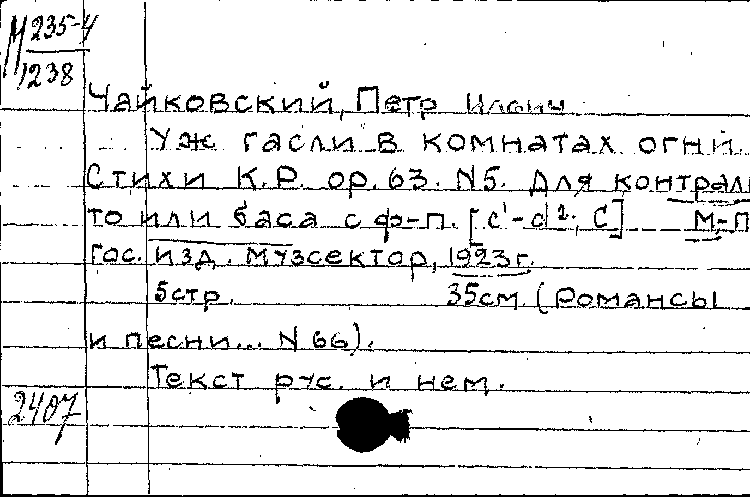 М 235-4
1238
Чайковский, Петр Ильич
Уж гасли в комнатах огни.
Стихи К.Р. ор.63. N5. Для контраль
то или баса с ф-п. [c¹-d²; С] М.-П
Гос. изд. Музсектор, 1923г.
5стр. 35см (Романсы
и песни... N 66).
Текст рус. и нем.
2407